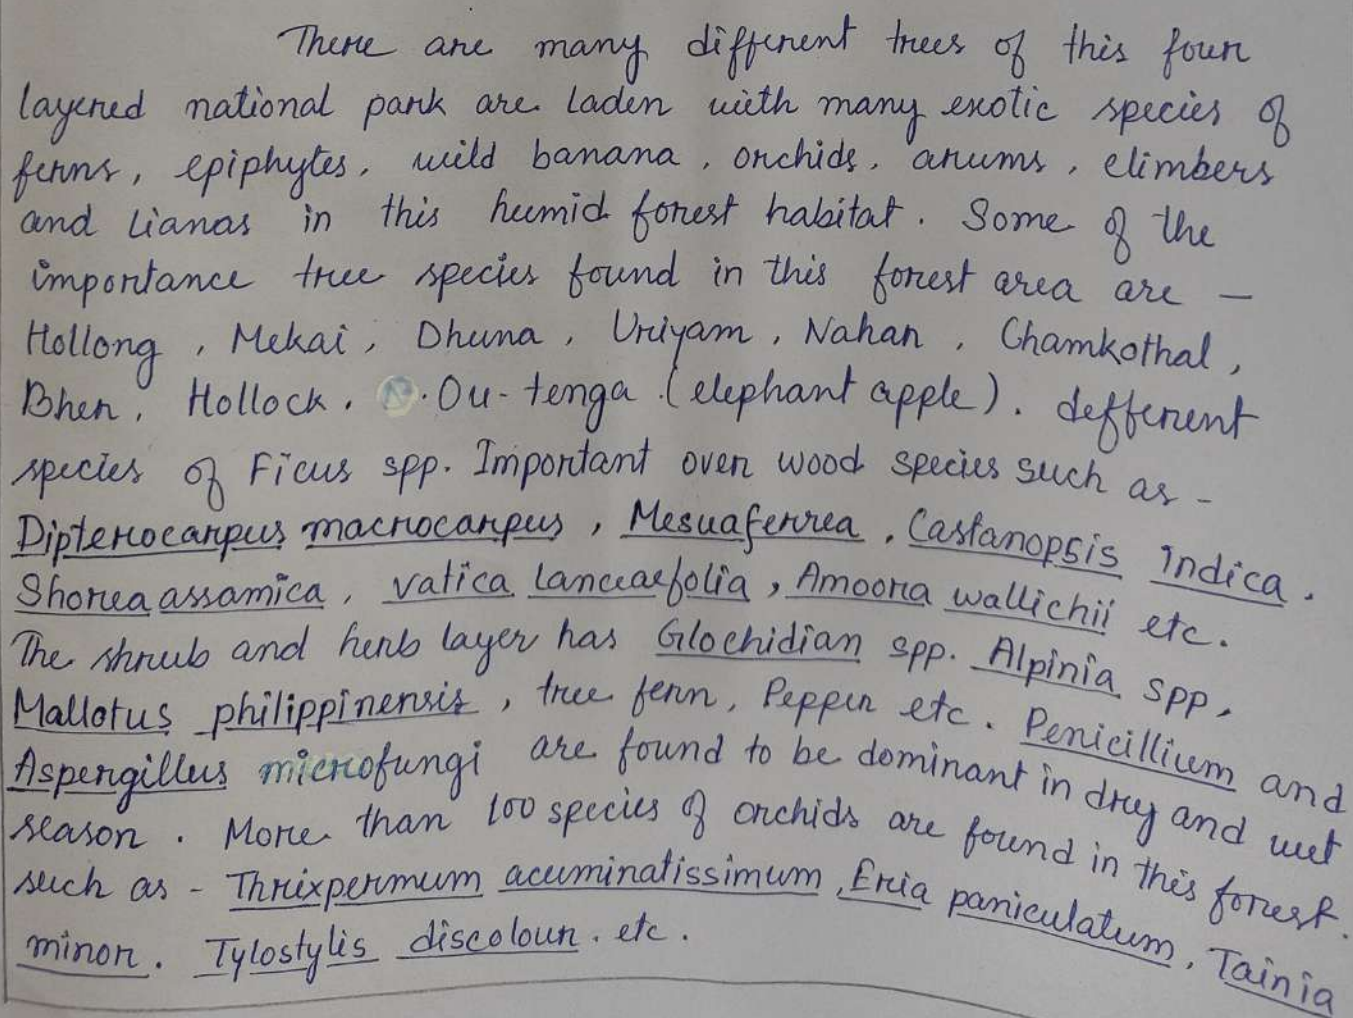 There are many different trees of this four
layered national park are laden with many exotic species of
ferns, epiphytes, wild banana, orchids, arums, climbers
and lianas in this humid forest habitat. Some of the
importance tree species found in this forest area are -
Hollong, Mekai, Dhuna, Uriyam, Nahar, Chamkothal,
Bher, Hollock. Ou-tenga (elephant apple). defferent
species of Ficus spp. Important over wood species such as -
Dipterocarpus macrocarpus, Mesuaferrea, Castanopsis indica.
Shorea assamica, vatica lanceaefolia, Amoora wallichii etc.
The shrub and herb layer has Glochidian spp. Alpinia spp,
Mallotus philippinensis, tree fern, Pepper etc. Penicillium and
Aspergillus microfungi are found to be dominant in dry and wet
season. More than 100 species of orchids are found in this forest.
such as - Thrixpermum acuminatissimum, Eria paniculatum, Tainia
minor. Tylostylis discolour. etc.